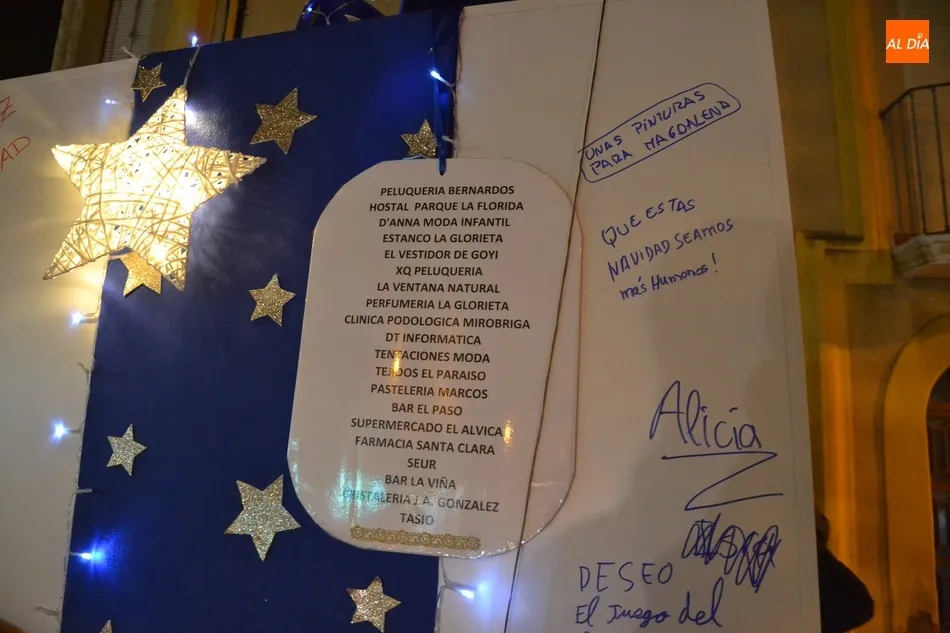 AL DÍA
Z
AD
UNAS PINTURAS
PARA MAGDALENA
PELUQUERIA BERNARDOS
HOSTAL PARQUE LA FLORIDA
D'ANNA MODA INFANTIL
ESTANCO LA GLORIETA
EL VESTIDOR DE GOYI
XQ PELUQUERIA
LA VENTANA NATURAL
PERFUMERIA LA GLORIETA
CLINICA PODOLOGICA MIROBRIGA
DT INFORMATICA
TENTACIONES MODA
TEJIDOS EL PARAISO
PASTELERIA MARCOS
BAR EL PASO
SUPERMERCADO EL ALVICA
FARMACIA SANTA CLARA
SEUR
BAR LA VIÑA
CRISTALERIA J.A. GONZALEZ
TASIO
QUE ESTAS
NAVIDAD SEAMOS
más Humanos!
Alicia
DESEO
El Juego del